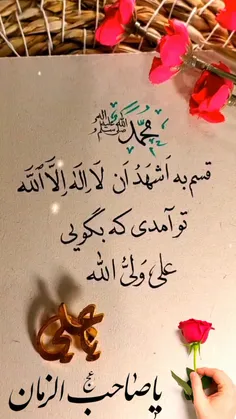 محمد
صلى الله عليه وآله وسلم
قسم به اَشهَدُ اَن لَا اِلٰهَ اِلَّا اَللّٰه
تو آمدی که بگویی
علی وَلیُّ الله
یاصاحب الزمان
عج